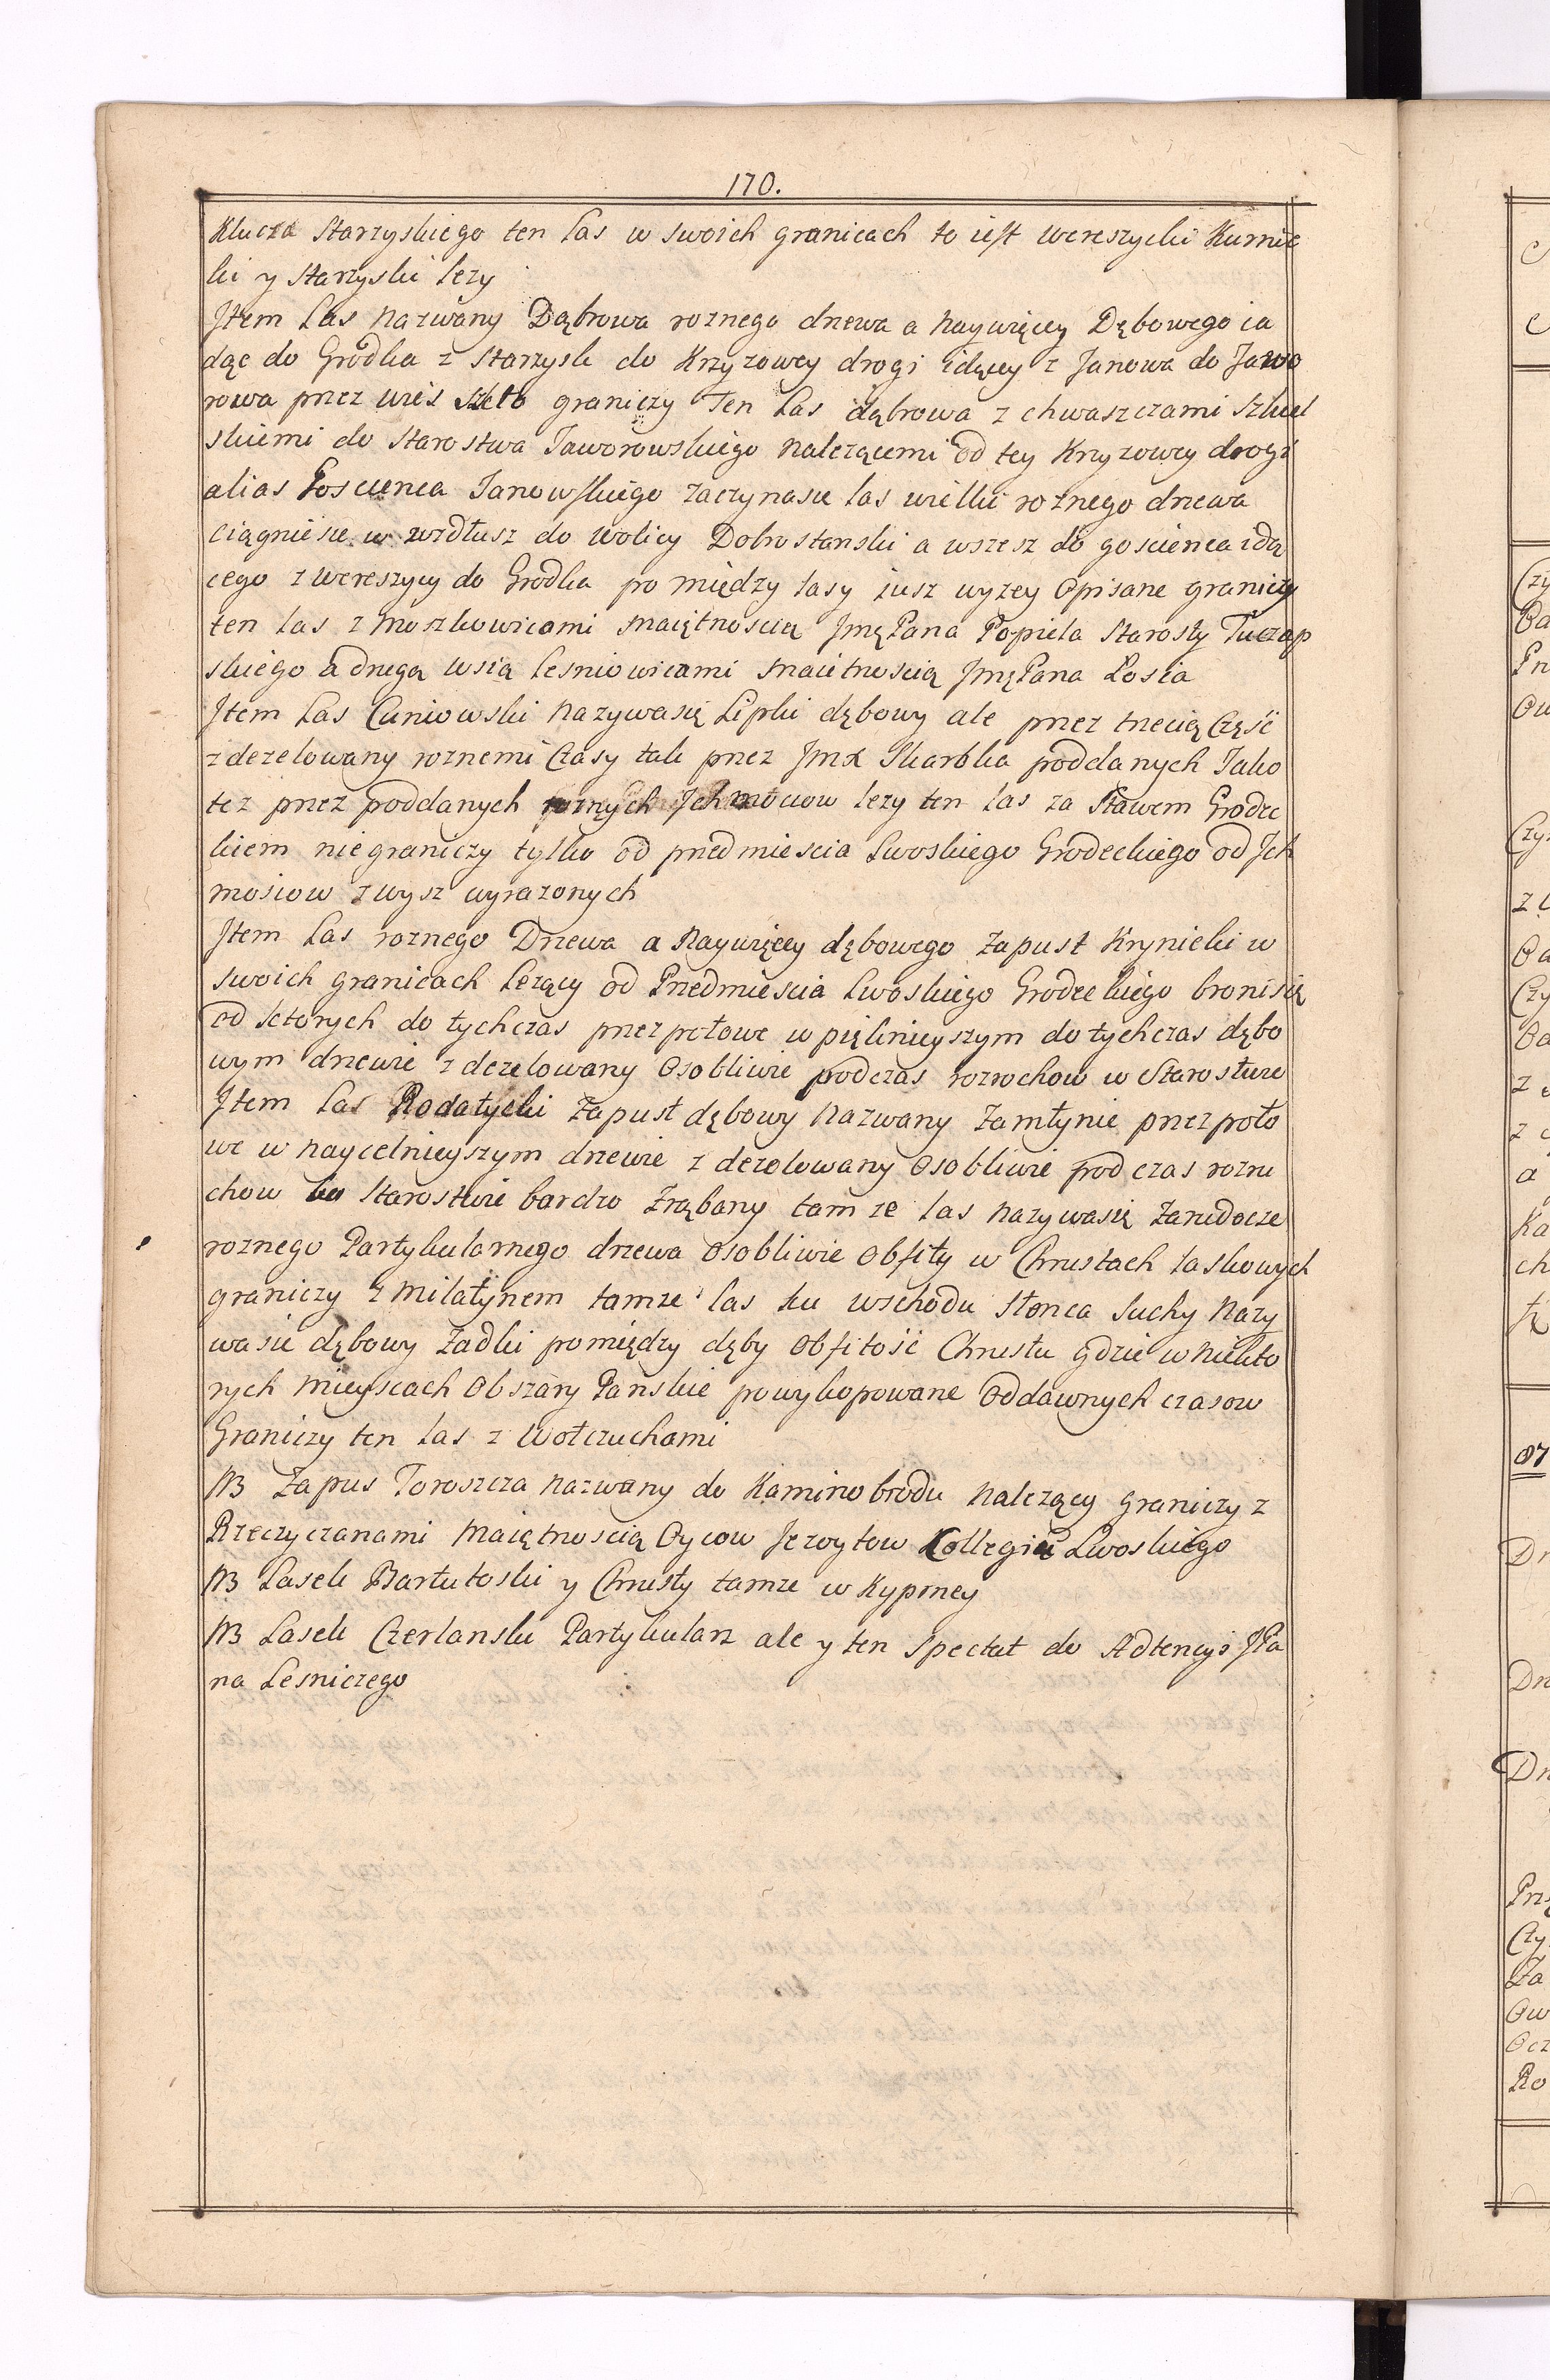 170.
Klucza Starzyskiego ten Las w swoich granicach to iest wereszycki Kurnic
ki y Starzyski lezy
Jtem Las Nazwany Dąbrowa roznego drzewa a Naywięcey Dębowego ia
dąc do Grodka z Starzysk do Krzyzowey drogi idącey z Janowa do Jawo
rowa przez wies Szkło graniczy Ten Las dąbrowa z chwaszczami Szkiel
skiemi do Starostwa Jaworowskiego Nalezącemi od tey Krzyzowey drogi
alias Goscienca Janowskiego zaczynasie las wielki roznego drzewa
ciągniesie w wzdłusz do Wolicy Dobrostanski a wszesz do goscienca idą
cego z wereszycy do Grodka po między lasy iusz wyzey Opisane graniczy
ten las z Moszkowicami Maiętnoscią Jmę Pana Popiela Starosty Tuczap
skiego a drugą wsią Lesniowicami Maiętnoscią Jmę Pana Łosia
Jtem Las Cuniowski Nazywasię Lipki dębowy ale przez trzecią Część
z dezelowany roznemi Czasy tak przez Jmx Skarbka poddanych Jako
tez przez poddanych roznych Jchmociow lezy ten las za Stawem Grodec
kiem niegraniczy tylko od przedmiescia Lwoskiego Grodeckiego od Jch
mosiow zwysz wyrazonych
Jtem Las roznego Drzewa a Naywięcey dębowego Zapust Krynicki w
swoich granicach Lezący od Przedmiescia Lwoskiego Grodeckiego bronisię
od ktorych do tychczas przezpołowe w pięknieyszym do tychczas dębo
wym drzewie z dezelowany Osobliwie podczas rozrochow w Starostwie
Jtem Las Rodatycki Zapust dębowy Nazwany Zamłynie przezpoło
we w naycelnieyszym drzewie z dezelowany Osobliwie pod czas rozru
chow w Starostwie bardzo Zrąbany tam ze las Nazywasię Zarudocze
roznego Partykularnego drzewa osobliwie Obfity w Chrustach laskowych
graniczy z Milatynem tamze las ku wschodu Słonca Suchy Nazy
wasie dębowy Zadki pomiędzy dęby Obfitość Chrustu gdzie w niekto
rych Mieyscach Obszary Panskie powykopowane Oddawnych czasow
Graniczy ten Las z Wołczuchami
NB Zapus Toroszcza Nazwany do Kaminobrodu Nalezący graniczy z
Rzeczyczanami Maiętnoscią Oycow Jezoytow Collegiu Lwoskiego
NB Lasek Bartutoski y Chrusty tamze w Kyprney
NB Lasek Czerlanski Partykularz ale y ten Spectat do Adtencyi JPa
na Lesniczego